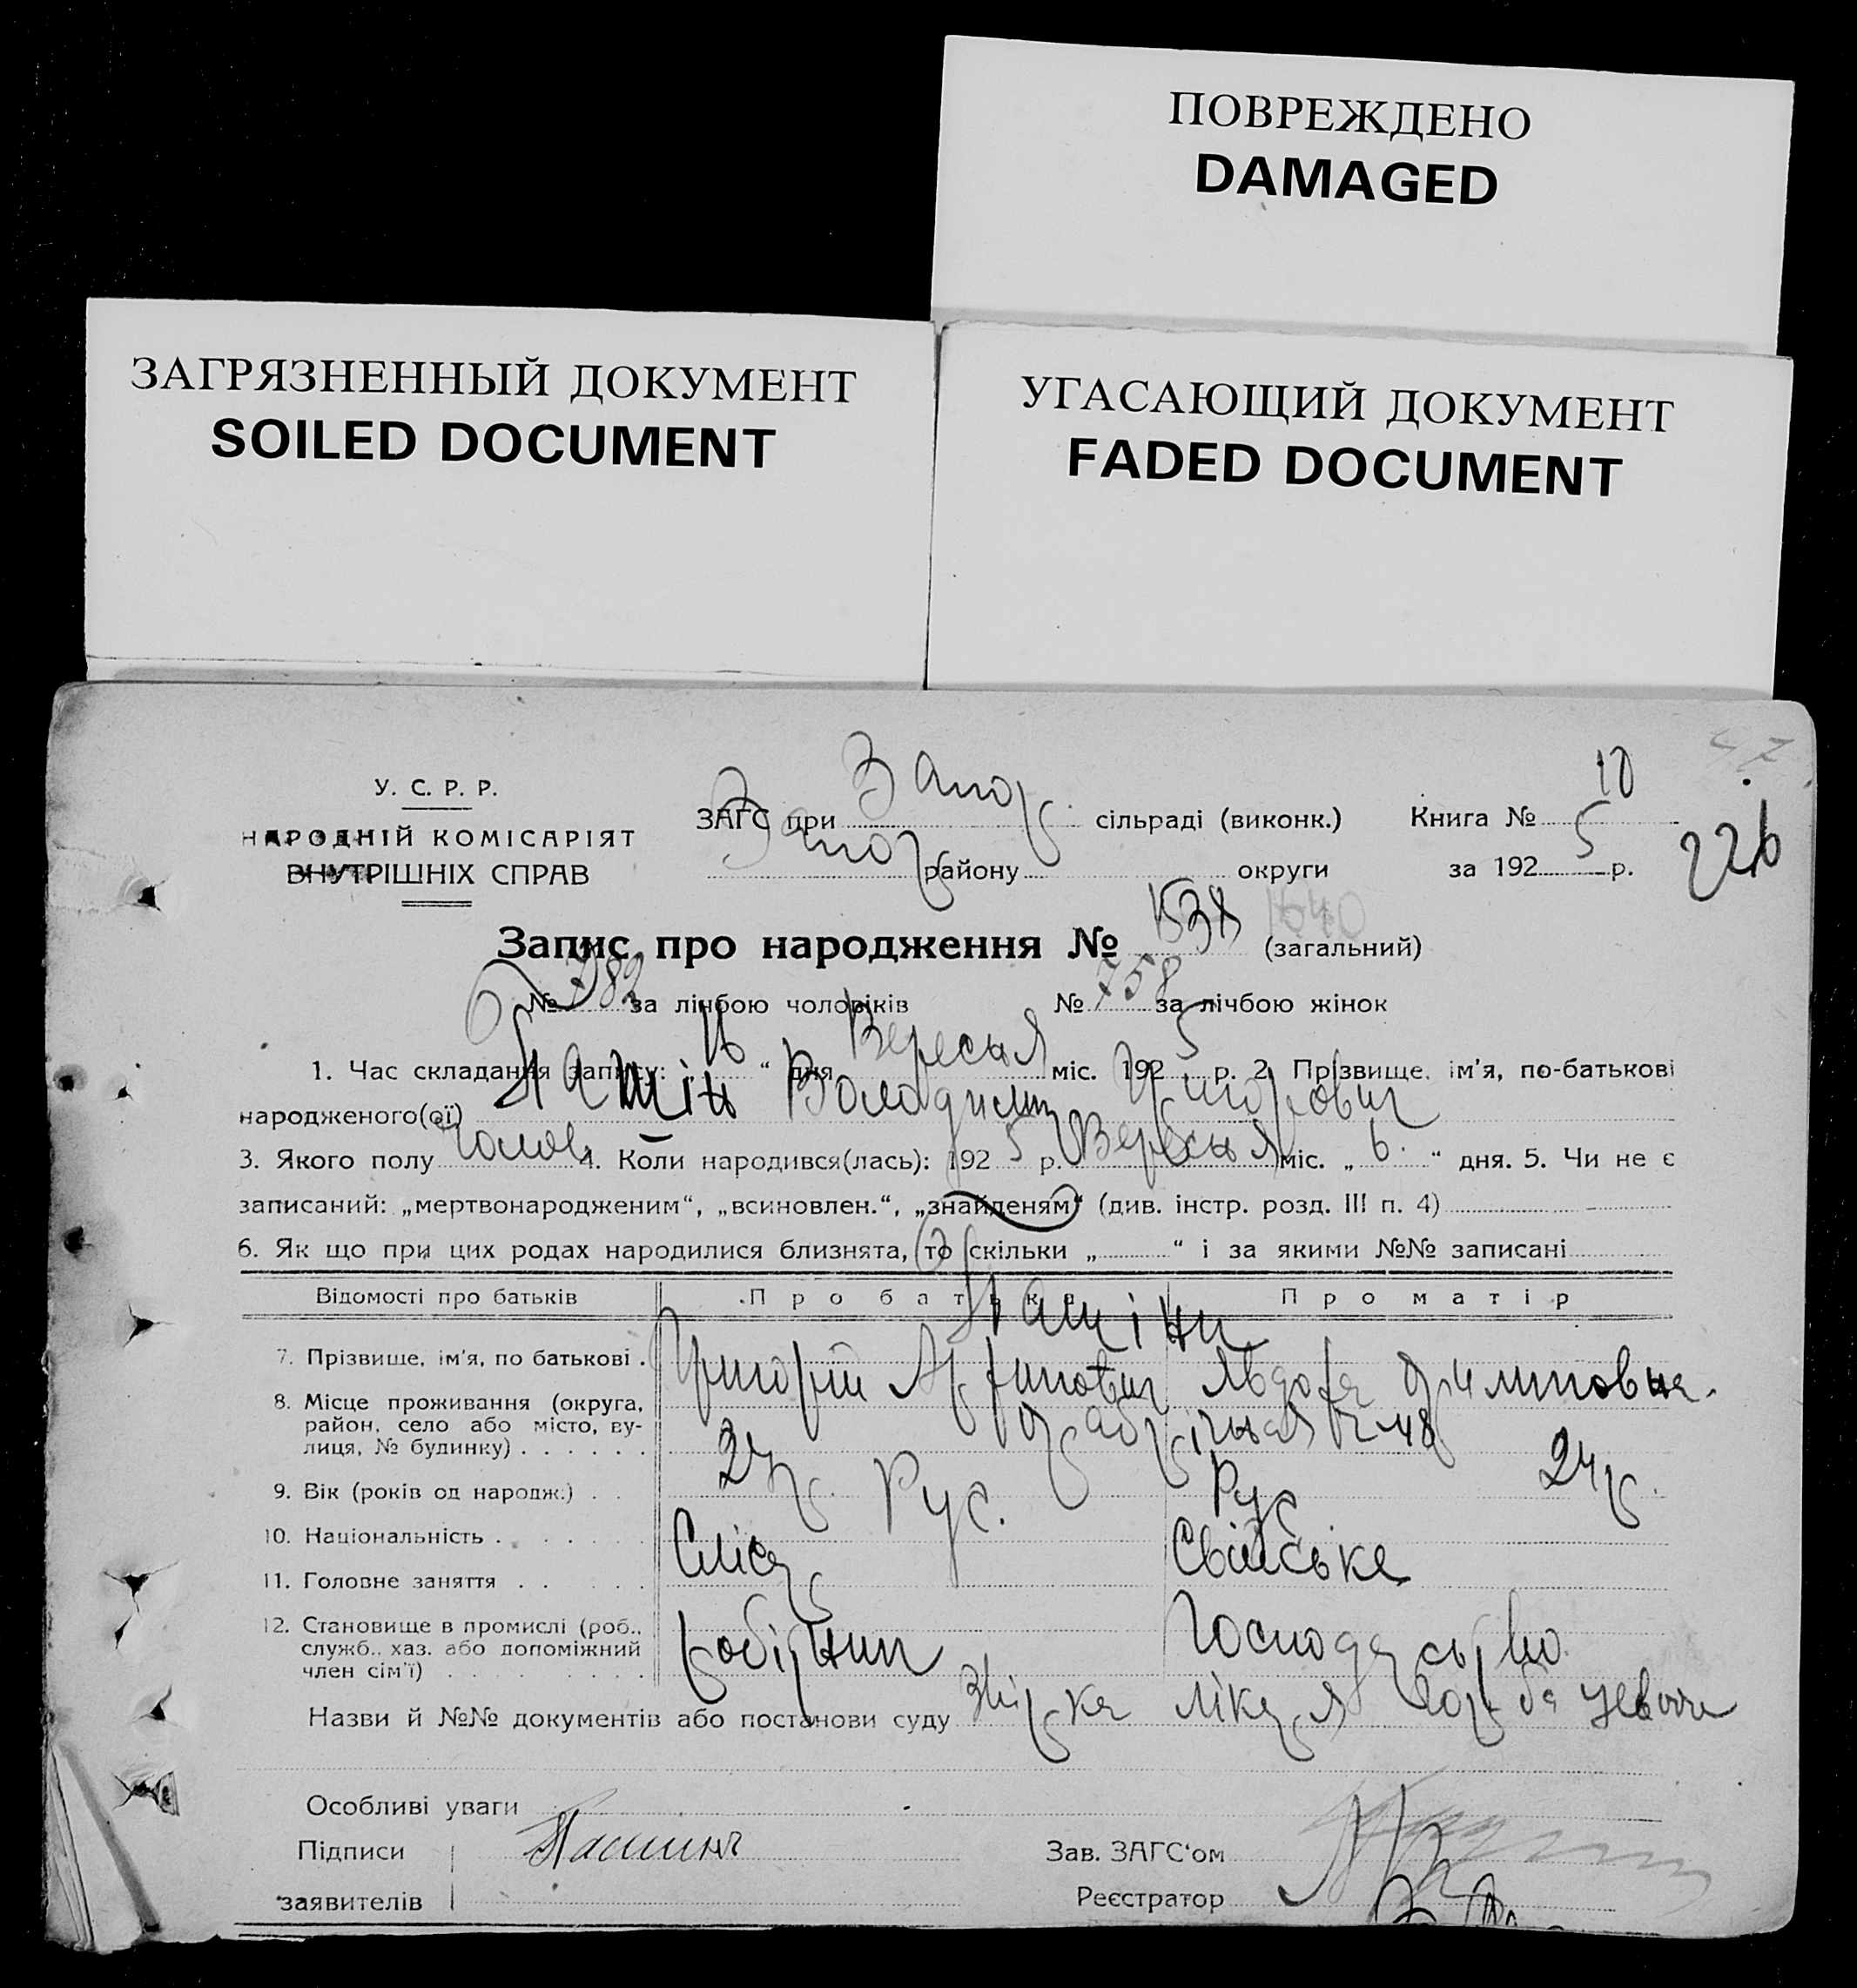 ПОВРЕЖДЕНО
DAMAGED
ЗАГРЯЗНЕННЫЙ ДОКУМЕНТ
SOILED DOCUMENT
УГАСАЮЩИЙ ДОКУМЕНТ
FADED DOCUMENT
У. С. Р. Р.
НАРОДНІЙ КОМІСАРІЯТ
ВНУТРІШНІХ СПРАВ
ЗАГС при Запор. сільраді (виконк.) Книга № 10
Запор району округи за 1925 р.
226
Запис про народження № 1538 1540 (загальний)
№ 782 за лічбою чоловіків № 758 за лічбою жінок
1. Час складання запису: 16 “ дня Вересня міс. 1925 р. 2. Прізвище, ім'я, по-батькові
народженого(ої) Пашін Володимир Григорович
3. Якого полу Чолов. 4. Коли народився(лась): 1925 р. Вересня міс. „ 6. “ дня. 5. Чи не є
записаний: „мертвонародженим“, „всиновлен.“, „знайденям“ (див. інстр. розд. III п. 4)
6. Як що при цих родах народилися близнята, то скільки „ “ і за якими №№ записані
Відомості про батьків Про батька Про матір
Пашіни
7. Прізвище, ім'я, по батькові . Григорій Явдоха
8. Місце проживання (округа,
район, село або місто, ву-
лиця, № будинку) . . . . . . 48
9. Вік (років од народж.) . . 24 р. 24 р.
10. Національність . . . . . . Рус. Рус
11. Головне заняття . . . . . Слюсар Свійське
12. Становище в промислі (роб.,
служб., хаз. або допоміжний
член сім'ї) . . . . . . . робітник Господарство
Назви й №№ документів або постанови суду лікаря
Особливі уваги
Підписи Пашинъ Зав. ЗАГС'ом
заявителів Реєстратор